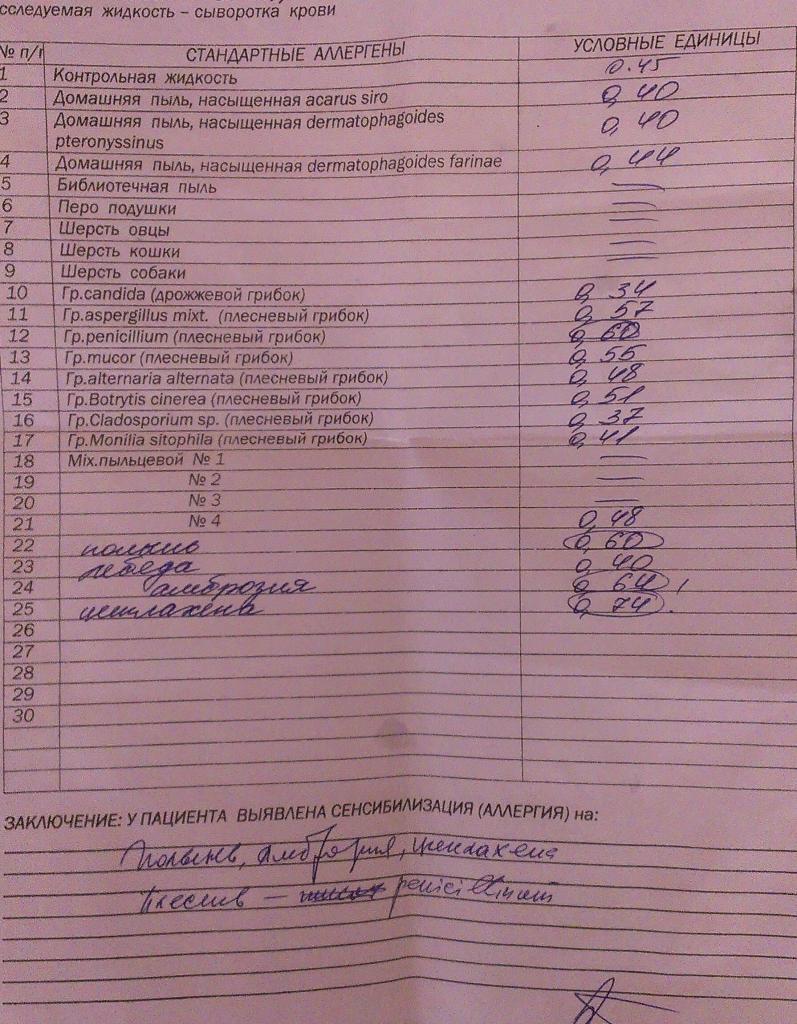 сследуемая жидкость – сыворотка крови
№ п/г СТАНДАРТНЫЕ АЛЛЕРГЕНЫ УСЛОВНЫЕ ЕДИНИЦЫ
1 Контрольная жидкость 0.45
2 Домашняя пыль, насыщенная acarus siro 0,40
3 Домашняя пыль, насыщенная dermatophagoides 0,40
pteronyssinus
4 Домашняя пыль, насыщенная dermatophagoides farinae 0,44
5 Библиотечная пыль —
6 Перо подушки —
7 Шерсть овцы —
8 Шерсть кошки —
9 Шерсть собаки —
10 Гр.candida (дрожжевой грибок) 0,34
11 Гр.aspergillus mixt. (плесневый грибок) 0,57
12 Гр.penicillium (плесневый грибок) 0,60
13 Гр.mucor (плесневый грибок) 0,55
14 Гр.alternaria alternata (плесневый грибок) 0,48
15 Гр.Botrytis cinerea (плесневый грибок) 0,51
16 Гр.Cladosporium sp. (плесневый грибок) 0,37
17 Гр.Monilia sitophila (плесневый грибок) 0,41
18 Mix.пыльцевой № 1 —
19 № 2 —
20 № 3 —
21 № 4 0,48
22 полынь 0,60
23 лебеда 0,40
24 амброзия 0,64 !
25 циклахена 0,74.
26
27
28
29
30
ЗАКЛЮЧЕНИЕ: У ПАЦИЕНТА ВЫЯВЛЕНА СЕНСИБИЛИЗАЦИЯ (АЛЛЕРГИЯ) на:
Полынь, Амброзия, циклахена
Плеснь — penicillinum